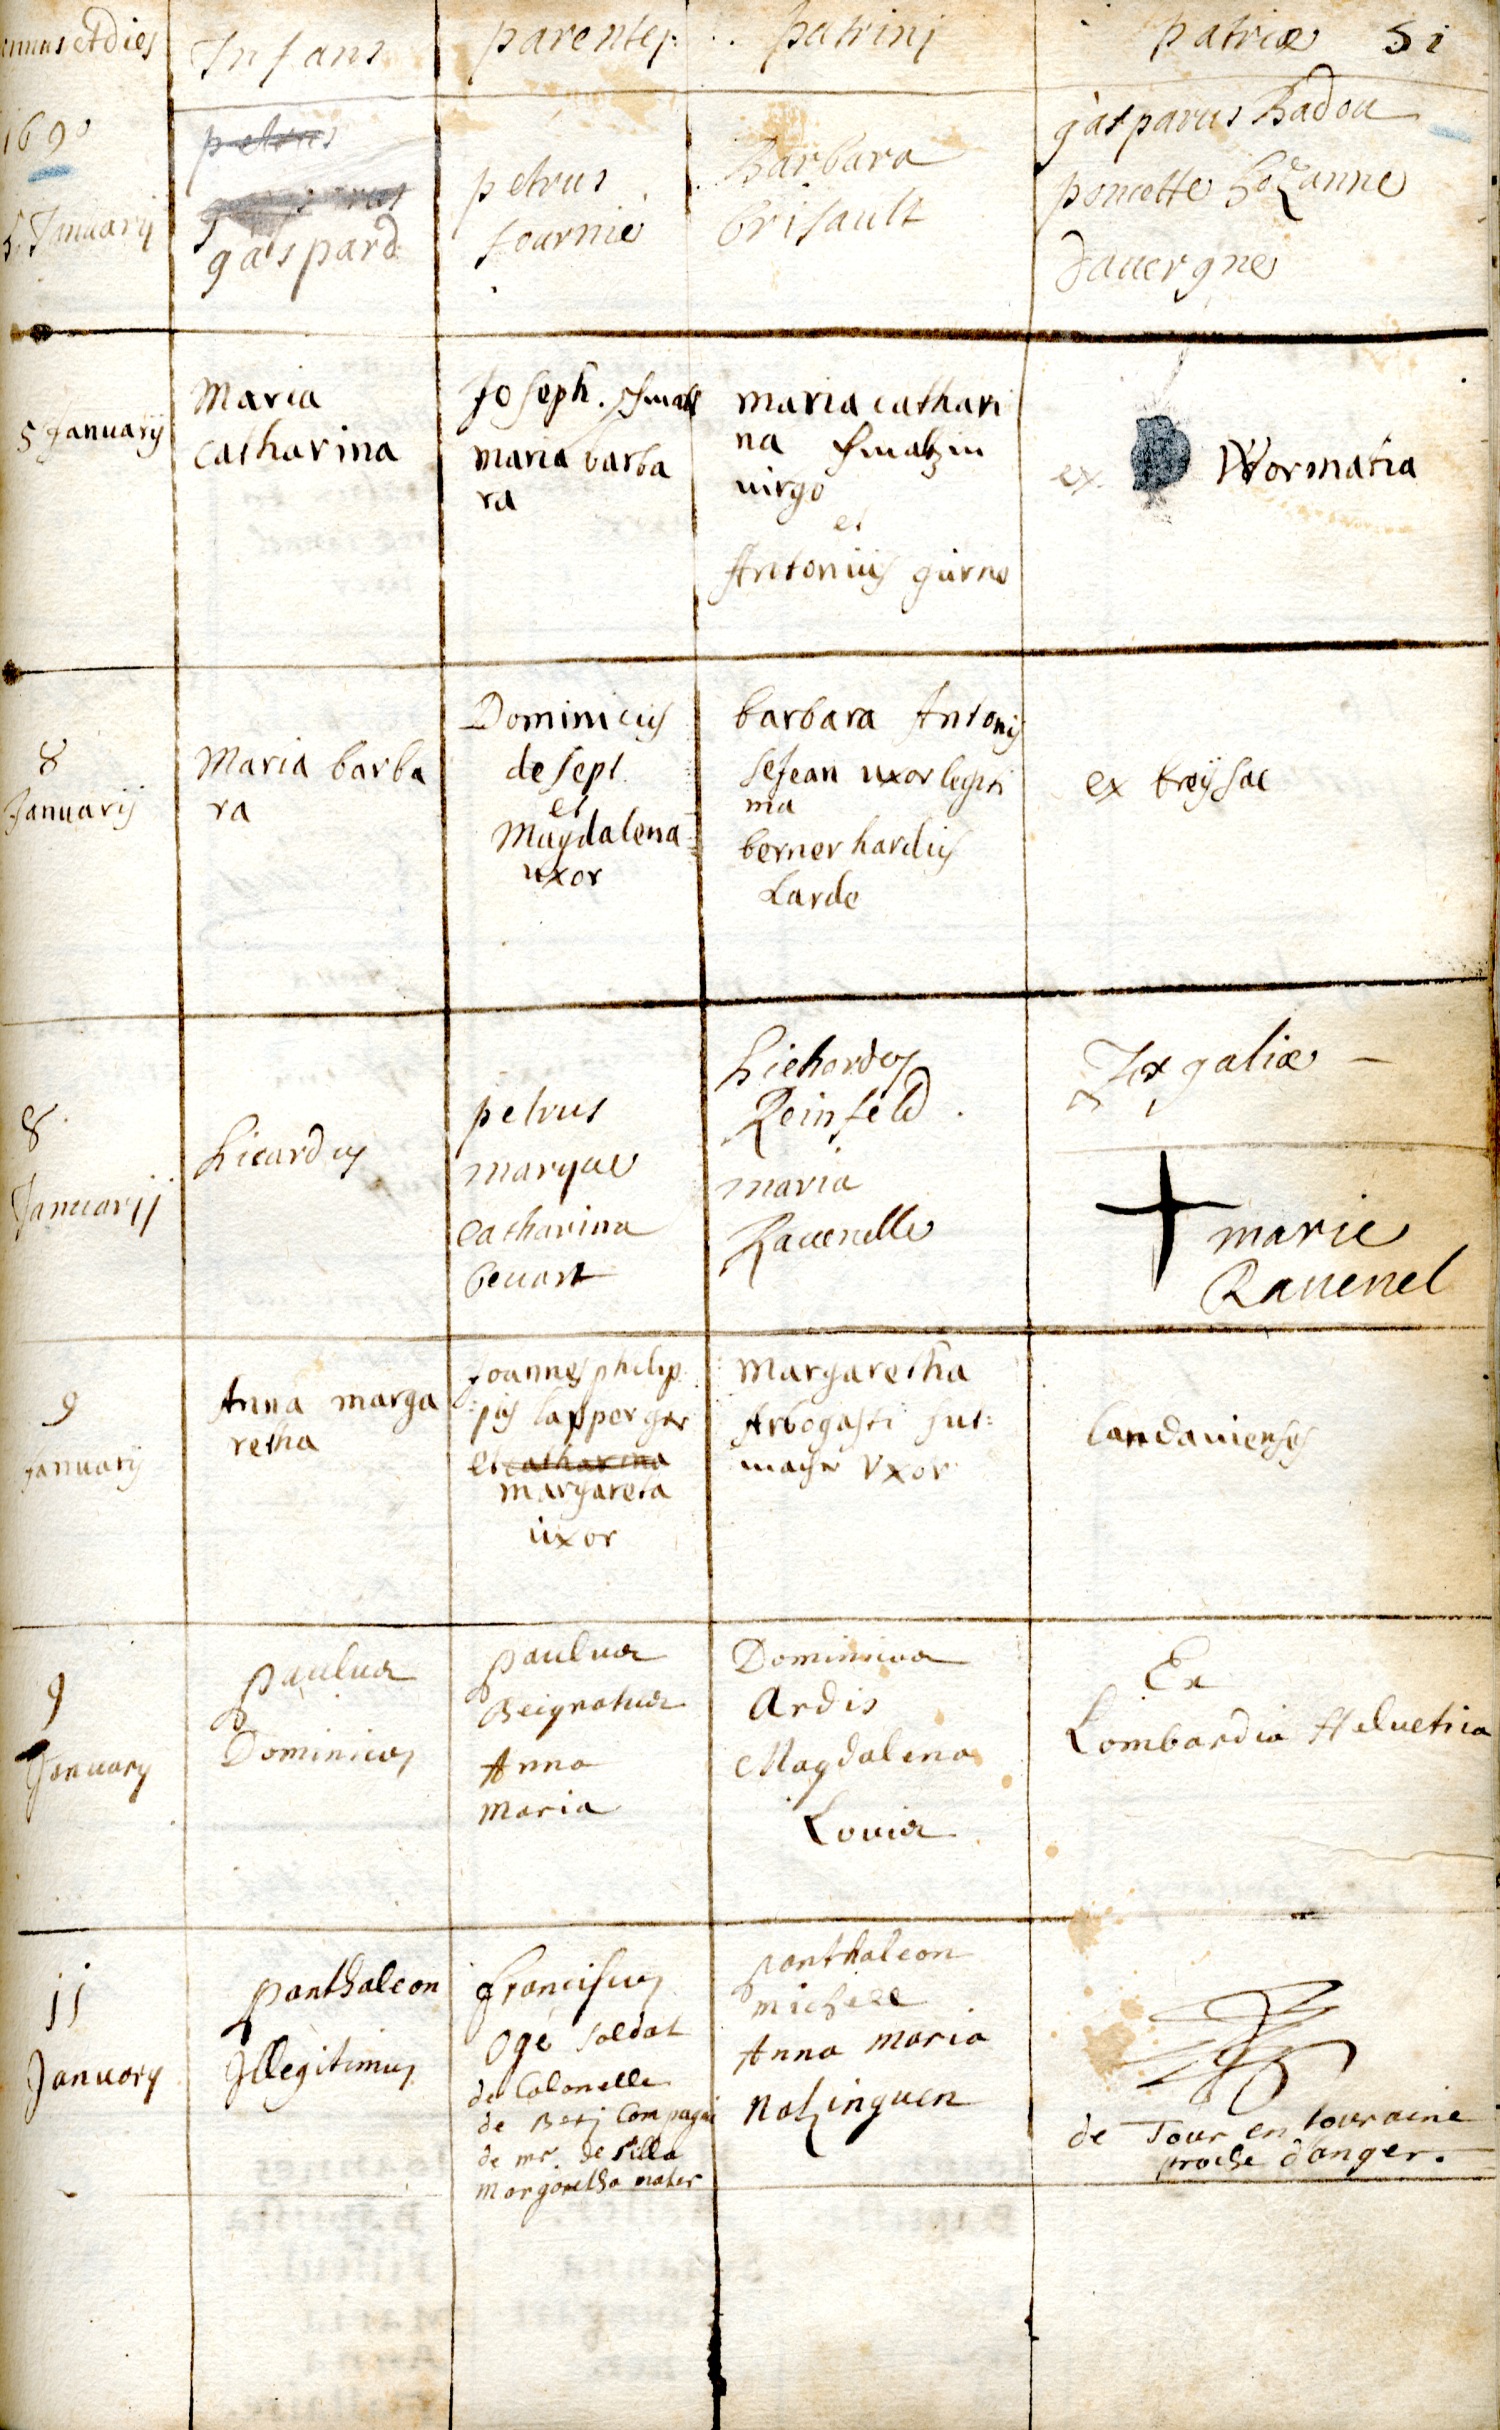 annus et dies
Infans
parentes
patrini
patriæ 51
1690
5 Januarij
petrus
gaspard
petrus
fournié
Barbara
Brisault
gasparus Badou
poncette Sezanne
dauergne
5 Januarij
Maria
Catharina
Joseph. Smalz
maria barba
ra
maria cathari
na Smalzin
uirgo
et
Antonius gürno
ex Wormatia
8
Januarij
Maria barba
ra
Dominicus
de sept
et
Magdalena
uxor
barbara Antonij
Sejean uxor legiti
ma
bernerhardus
Larde
ex breÿsac
8
Januarij
Ricardus
petrus
marque
Catharina
beuart
Richardus
Reinfeld
maria
Rauenelle
Ex galiæ
marie
Rauenel
9
Januarij
Anna marga
retha
Joannes philip
pus lapperger
et catharina
margareta
uxor
Margaretha
Arbogasti Hut=
macher Vxor
landauiensis
9
January
Paulus
Dominicus
Paulus
Beignatus
Anna
Maria
Dominicus
Ardis
Magdalena
Louis
Ex
Lombardia Helvetica
11
January
Panthaleon
Illegitimus
Franciscus
Ogé soldat
de Colonelle
de Bery Compagnie
de mr. de Silla
Margaretha mater
Panthaleon
michell
Anna Maria
Notzinguen
de Tour en touraine
proche d'anger.